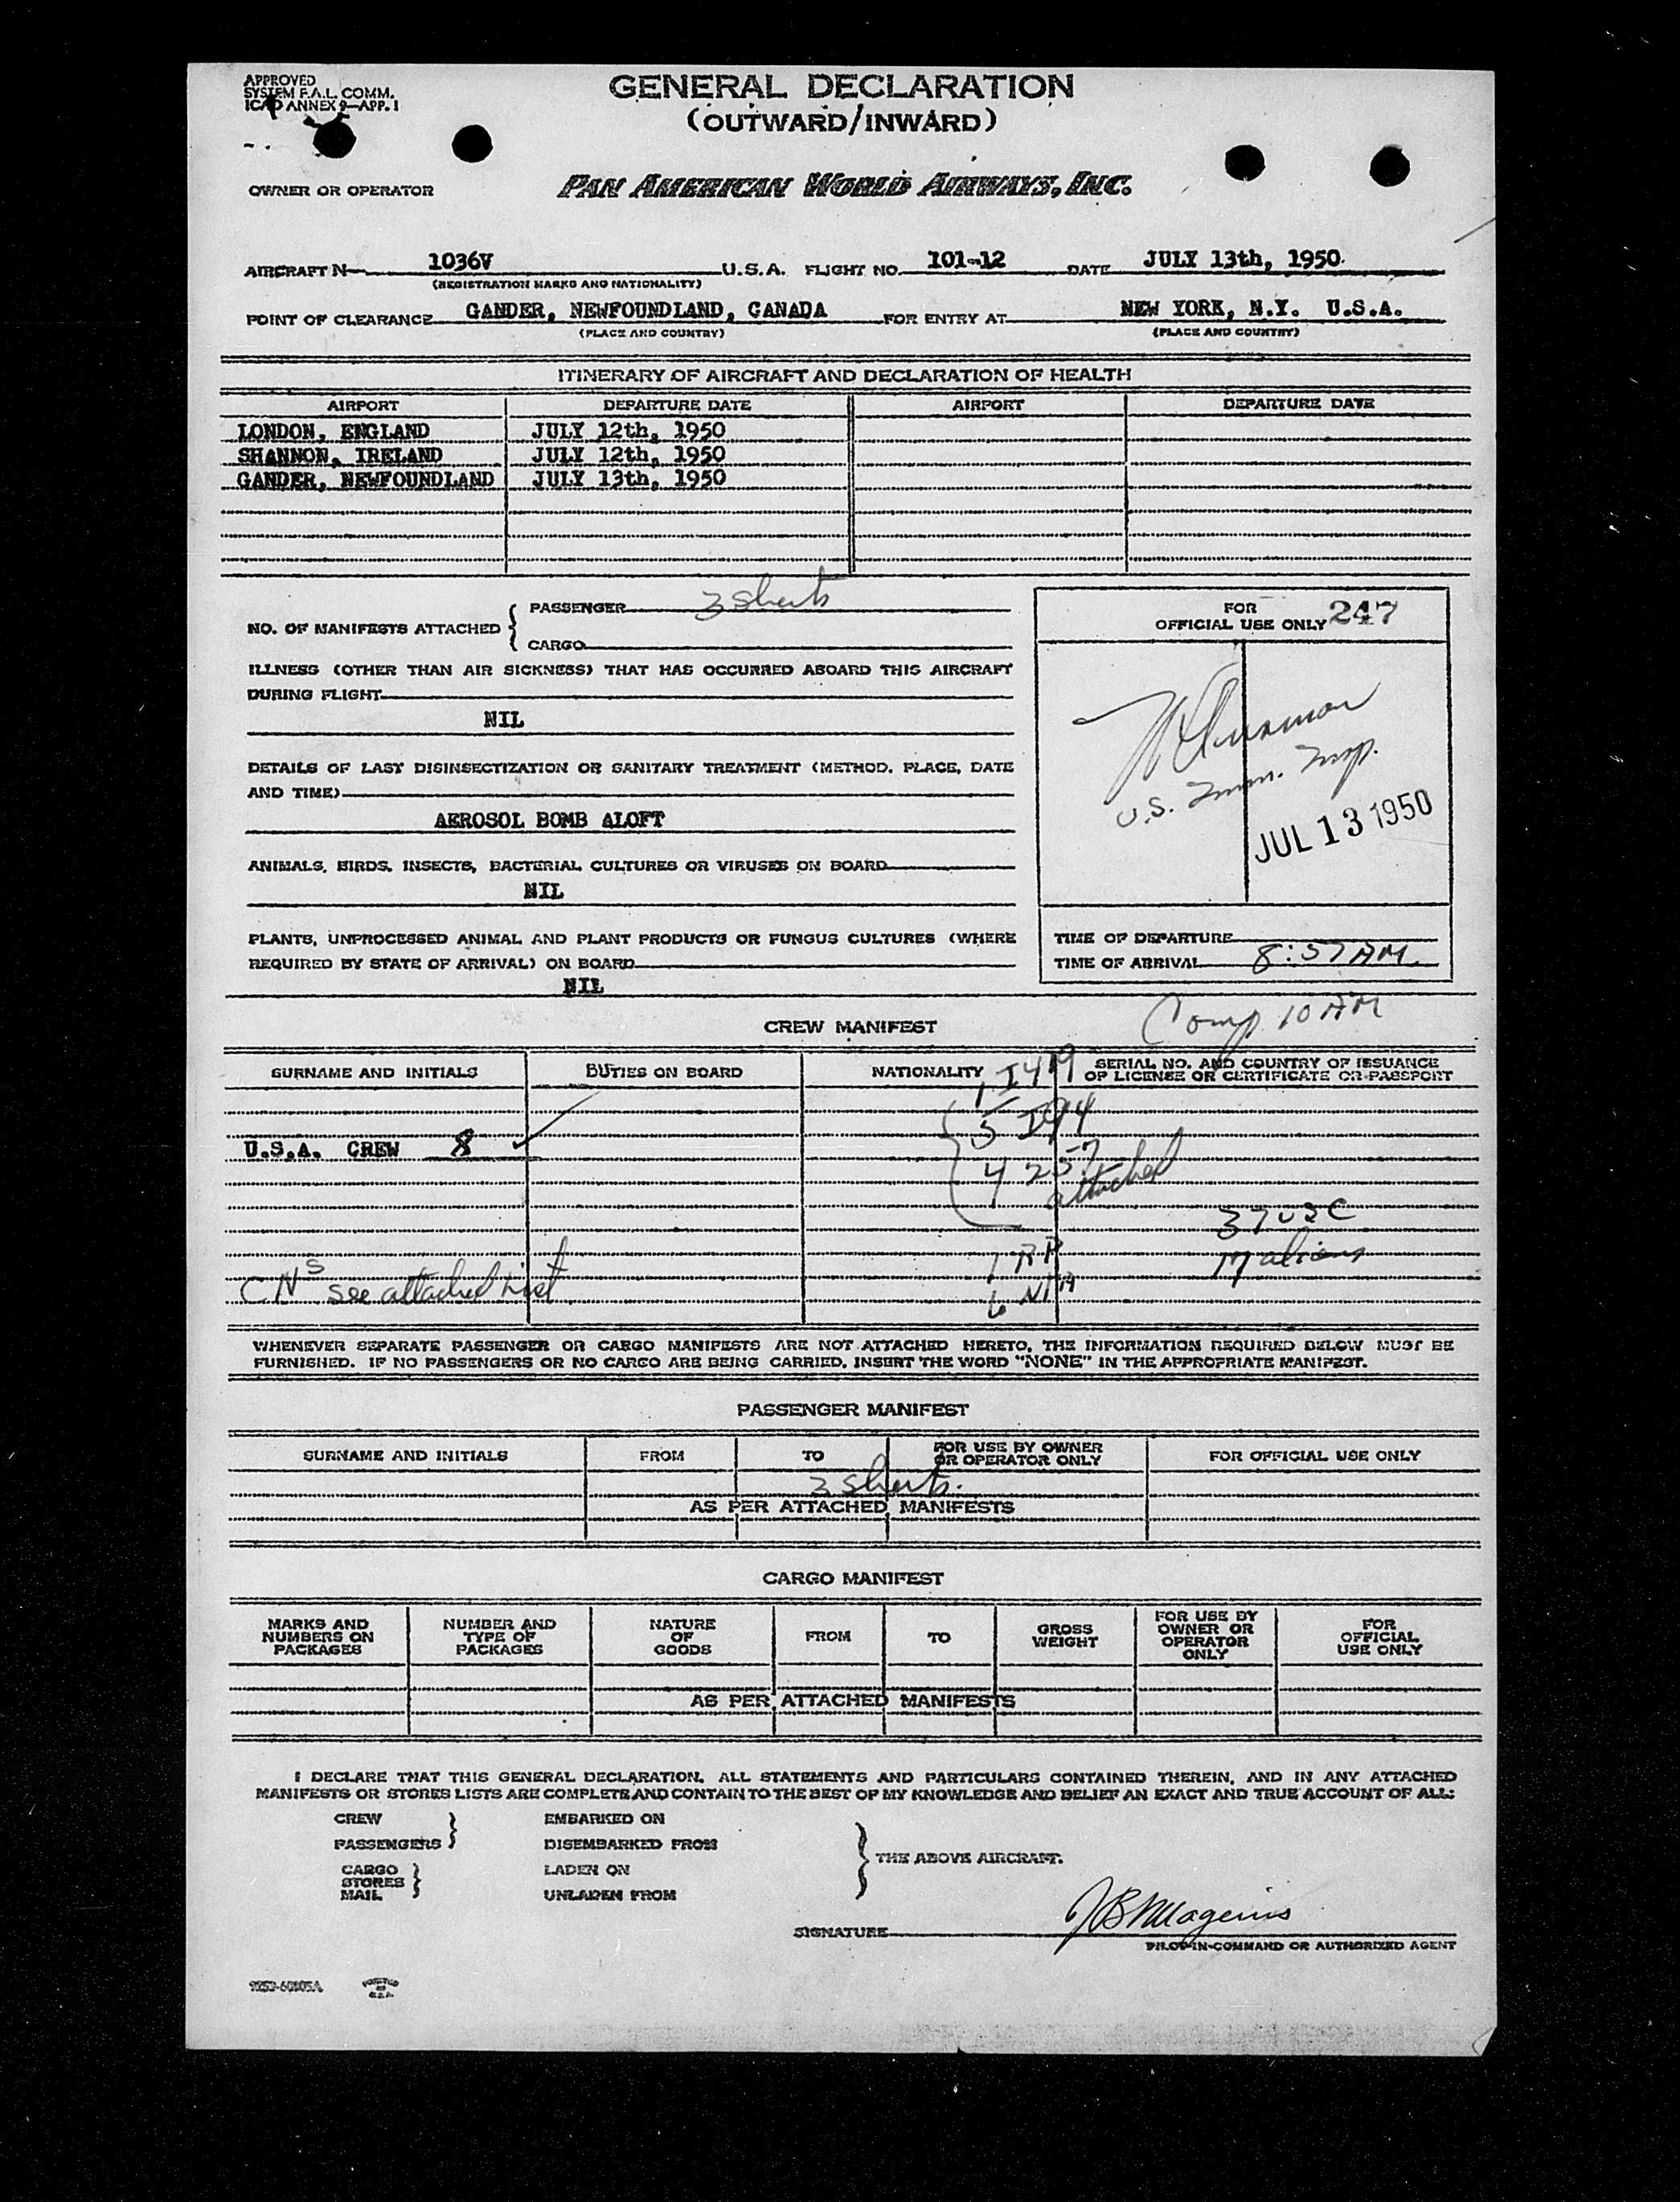 APPROVED
SYSTEM F.A.L. COMM.
ICAO ANNEX 9—APP. 1
GENERAL DECLARATION
(OUTWARD/INWARD)
OWNER OR OPERATOR PAN AMERICAN WORLD AIRWAYS, INC.
AIRCRAFT N— 1036V U.S.A. FLIGHT NO. 101-12 DATE JULY 13th, 1950.
(REGISTRATION MARKS AND NATIONALITY)
POINT OF CLEARANCE GANDER, NEWFOUNDLAND, CANADA FOR ENTRY AT NEW YORK, N.Y. U.S.A.
(PLACE AND COUNTRY) (PLACE AND COUNTRY)
ITINERARY OF AIRCRAFT AND DECLARATION OF HEALTH
AIRPORT DEPARTURE DATE AIRPORT DEPARTURE DATE
LONDON, ENGLAND JULY 12th, 1950
SHANNON, IRELAND JULY 12th, 1950
GANDER, NEWFOUNDLAND JULY 13th, 1950
NO. OF MANIFESTS ATTACHED { PASSENGER 3 sheets
CARGO
FOR
OFFICIAL USE ONLY 247
ILLNESS (OTHER THAN AIR SICKNESS) THAT HAS OCCURRED ABOARD THIS AIRCRAFT
DURING FLIGHT
NIL
DETAILS OF LAST DISINSECTIZATION OR SANITARY TREATMENT (METHOD, PLACE, DATE
AND TIME)
AEROSOL BOMB ALOFT
U.S. Imm. Insp.
JUL 13 1950
ANIMALS, BIRDS, INSECTS, BACTERIAL CULTURES OR VIRUSES ON BOARD
NIL
PLANTS, UNPROCESSED ANIMAL AND PLANT PRODUCTS OR FUNGUS CULTURES (WHERE
REQUIRED BY STATE OF ARRIVAL) ON BOARD
NIL
TIME OF DEPARTURE
TIME OF ARRIVAL 8:57 AM.
Comp 10 AM
CREW MANIFEST
SURNAME AND INITIALS DUTIES ON BOARD NATIONALITY SERIAL NO. AND COUNTRY OF ISSUANCE
OF LICENSE OR CERTIFICATE OR PASSPORT
1 I 419
5 I 94
U.S.A. CREW 8
4 257
attached
37 USC
17 aliens
1 RP
CNs see attached list
6 NIA
WHENEVER SEPARATE PASSENGER OR CARGO MANIFESTS ARE NOT ATTACHED HERETO, THE INFORMATION REQUIRED BELOW MUST BE
FURNISHED. IF NO PASSENGERS OR NO CARGO ARE BEING CARRIED, INSERT THE WORD "NONE" IN THE APPROPRIATE MANIFEST.
PASSENGER MANIFEST
SURNAME AND INITIALS FROM TO FOR USE BY OWNER
OR OPERATOR ONLY FOR OFFICIAL USE ONLY
3 sheets.
AS PER ATTACHED MANIFESTS
CARGO MANIFEST
MARKS AND
NUMBERS ON
PACKAGES
NUMBER AND
TYPE OF
PACKAGES
NATURE
OF
GOODS
FROM
TO
GROSS
WEIGHT
FOR USE BY
OWNER OR
OPERATOR
ONLY
FOR
OFFICIAL
USE ONLY
AS PER ATTACHED MANIFESTS
I DECLARE THAT THIS GENERAL DECLARATION, ALL STATEMENTS AND PARTICULARS CONTAINED THEREIN, AND IN ANY ATTACHED
MANIFESTS OR STORES LISTS ARE COMPLETE AND CONTAIN TO THE BEST OF MY KNOWLEDGE AND BELIEF AN EXACT AND TRUE ACCOUNT OF ALL:
CREW EMBARKED ON
PASSENGERS DISEMBARKED FROM
THE ABOVE AIRCRAFT.
CARGO LADEN ON
STORES
MAIL UNLADEN FROM
SIGNATURE JB Magenis
PILOT-IN-COMMAND OR AUTHORIZED AGENT
PRINTED
IN
U.S.A.